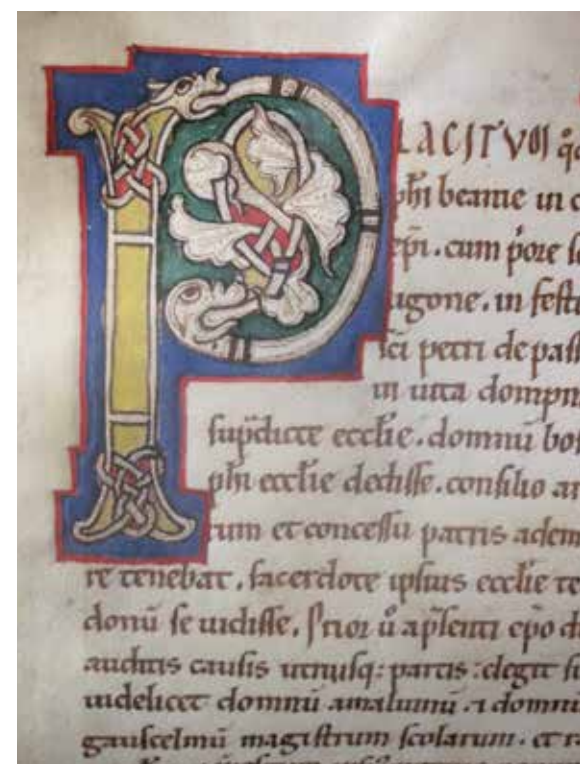 PLACITVM q̄
phi beatrie in
ep̄i. cum p̄ore
ugone. in fest
sc̄i petri de pass
in uita dompn
sup̄dicte eccl̄ie. domnū bo
phi eccl̄ie dedisse. consilio a
tum et concessu patris adem
re tenebat. sacerdote ipsius eccl̄ie te
donū se uidisse. Prior ū ap̄senti ep̄o d
auditis causis utriusq: partis: elegit
uidelicet domnū amaluinū. ⁊ domnū
gauscelmū magistrum scolarum. et